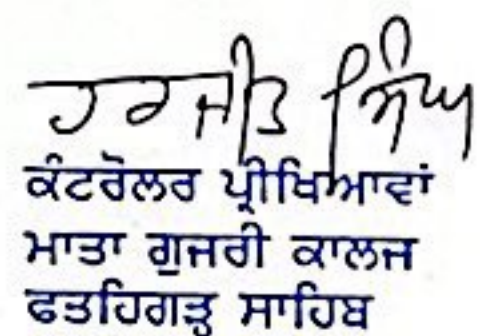 ਹਰਜੀਤ ਸਿੰਘ
ਕੰਟਰੋਲਰ ਪ੍ਰੀਖਿਆਵਾਂ
ਮਾਤਾ ਗੁਜਰੀ ਕਾਲਜ
ਫਤਹਿਗੜ੍ਹ ਸਾਹਿਬ